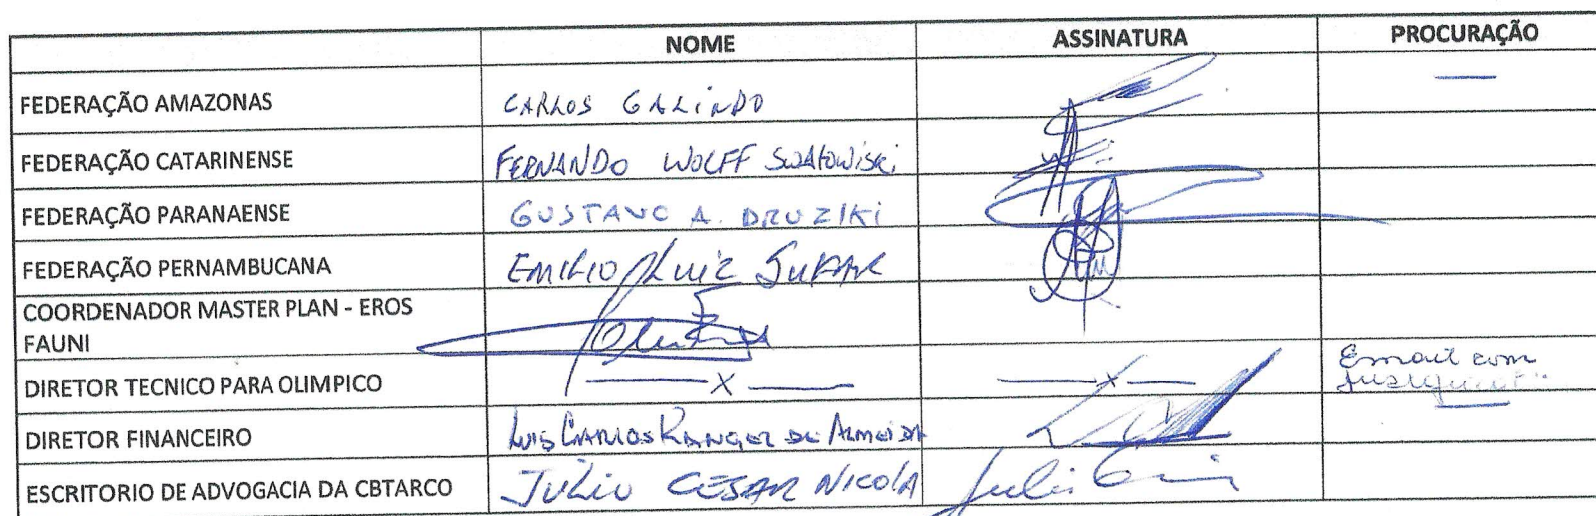 NOME ASSINATURA PROCURAÇÃO
FEDERAÇÃO AMAZONAS CARLOS GALINDO —
FEDERAÇÃO CATARINENSE FERNANDO WOLFF
FEDERAÇÃO PARANAENSE GUSTAVO A. DRUZIKI
FEDERAÇÃO PERNAMBUCANA EMILIO LUIZ
COORDENADOR MASTER PLAN - EROS
FAUNI
DIRETOR TECNICO PARA OLIMPICO —X— —X— Email com
DIRETOR FINANCEIRO LUIS CARLOS RANGEL DE ALMEIDA —
ESCRITORIO DE ADVOGACIA DA CBTARCO JÚLIO CESAR NICOLA